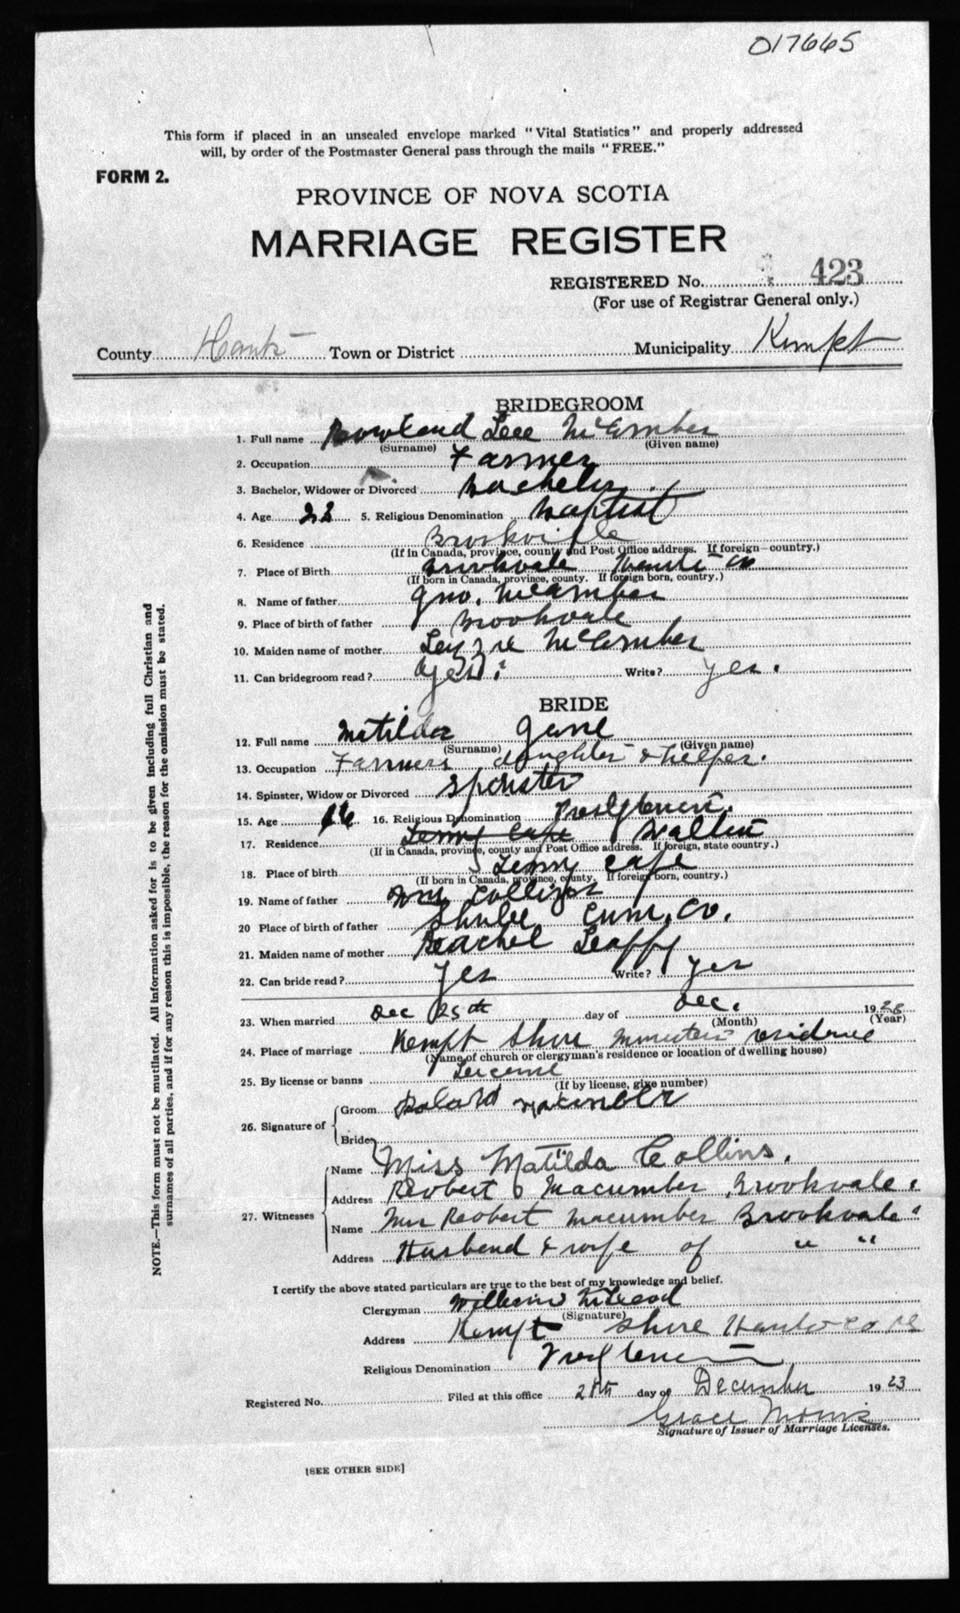 017665
This form if placed in an unsealed envelope marked "Vital Statistics" and properly addressed
will, by order of the Postmaster General pass through the mails "FREE."
FORM 2.
PROVINCE OF NOVA SCOTIA
MARRIAGE REGISTER
REGISTERED No. 423
(For use of Registrar General only.)
County Hants Town or District Municipality Kempt
BRIDEGROOM
1. Full name Rowland Lee McCumber
(Surname) (Given name)
2. Occupation Farmer
3. Bachelor, Widower or Divorced Bachelor
4. Age 5. Religious Denomination Baptist
6. Residence Brookville
(If in Canada, province, county and Post Office address. If foreign—country.)
7. Place of Birth Brookvale Hants Co
(If born in Canada, province, county. If foreign born, country.)
8. Name of father Gno. McCumber
9. Place of birth of father Brookvale
10. Maiden name of mother McComber
11. Can bridegroom read? Yes. Write? yes.
BRIDE
12. Full name Matilda Jane
(Surname) (Given name)
13. Occupation Farmers daughter & helper.
14. Spinster, Widow or Divorced Spinster
15. Age 16 16. Religious Denomination Presbyterian.
17. Residence Tenny Cape Walton
(If in Canada, province, county and Post Office address. If foreign, state country.)
18. Place of birth Tenny Cape
(If born in Canada, province, county. If foreign born, country.)
19. Name of father Wm Collins
20 Place of birth of father Shulee Cum. Co.
21. Maiden name of mother Reachel Leappy
22. Can bride read? yes Write? yes
23. When married Dec 25th day of Dec. 19
(Month) (Year)
24. Place of marriage Kempt Shore Ministers residence
(Name of church or clergyman's residence or location of dwelling house)
25. By license or banns License
(If by license, give number)
26. Signature of Groom
Bride
27. Witnesses Name Miss Matilda Collins.
Address Robert Macumber Brookvale.
Name Mrs Reobert Macumber Brookvale "
Address Husbend & wife of " "
I certify the above stated particulars are true to the best of my knowledge and belief.
Clergyman William McLeod
(Signature)
Address Kempt Shore Hants Co
Religious Denomination Presbyterian
Registered No. Filed at this office 28th day of December 1923
Grace Morris
Signature of Issuer of Marriage Licenses.
[SEE OTHER SIDE]
NOTE.—This form must not be mutilated. All information asked for is to be given including full Christian and
surnames of all parties, and if for any reason this is impossible, the reason for the omission must be stated.